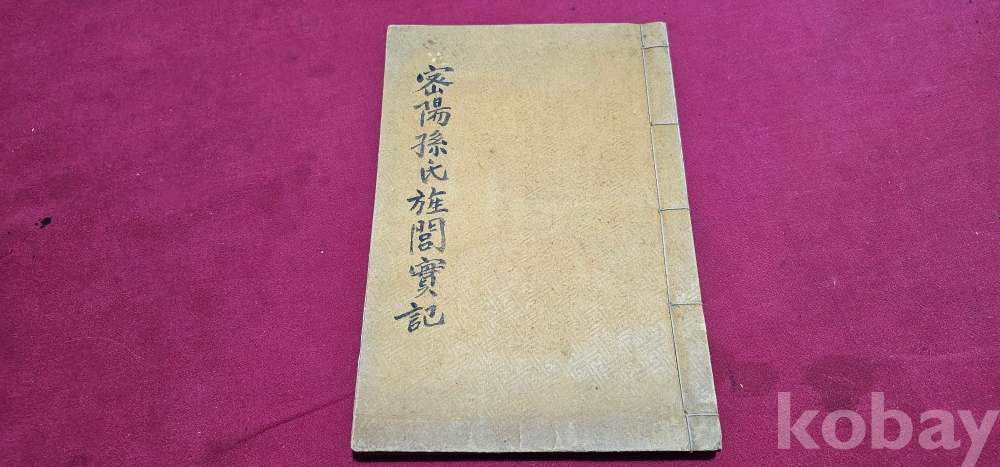 密陽孫氏旌閭實記
kobay